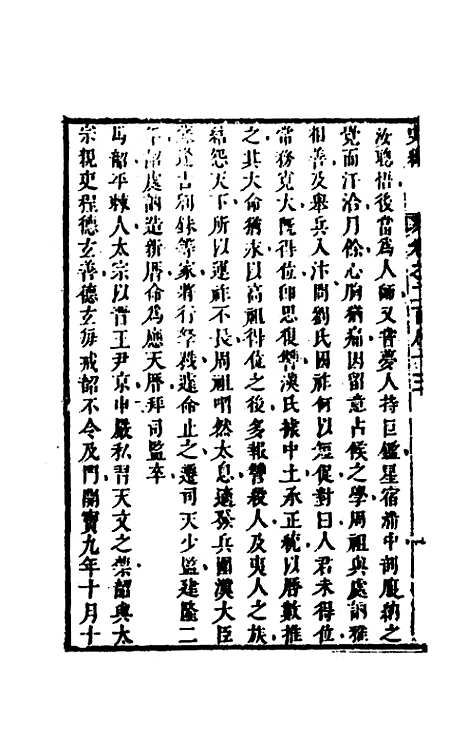 汝聰悟後當爲人師又嘗夢人持巨鑑星宿滿中剖腹納之
覺而汗洽月餘心胸猶痛因留意占候之學周祖與處訥雅
相善及舉兵入汴問劉氏國祚何以短促對曰人君未得位
常務寬大既得位即思復讐漢氏據中土承正統以曆數推
之其大命猶永以高祖得位之後多報讐殺人及夷人之族
結怨天下所以運祚不長周祖喟然太息適發兵圍漢大臣
蘇逢吉劉銖等家將行孥戮遽命止之遷司天少監建隆二
年詔處訥造新曆命爲應天曆拜司監卒
馬韶平棘人太宗以晉王尹京申嚴私習天文之禁韶與太
宗親吏程德玄善德玄每戒韶不令及門開寶九年十月十